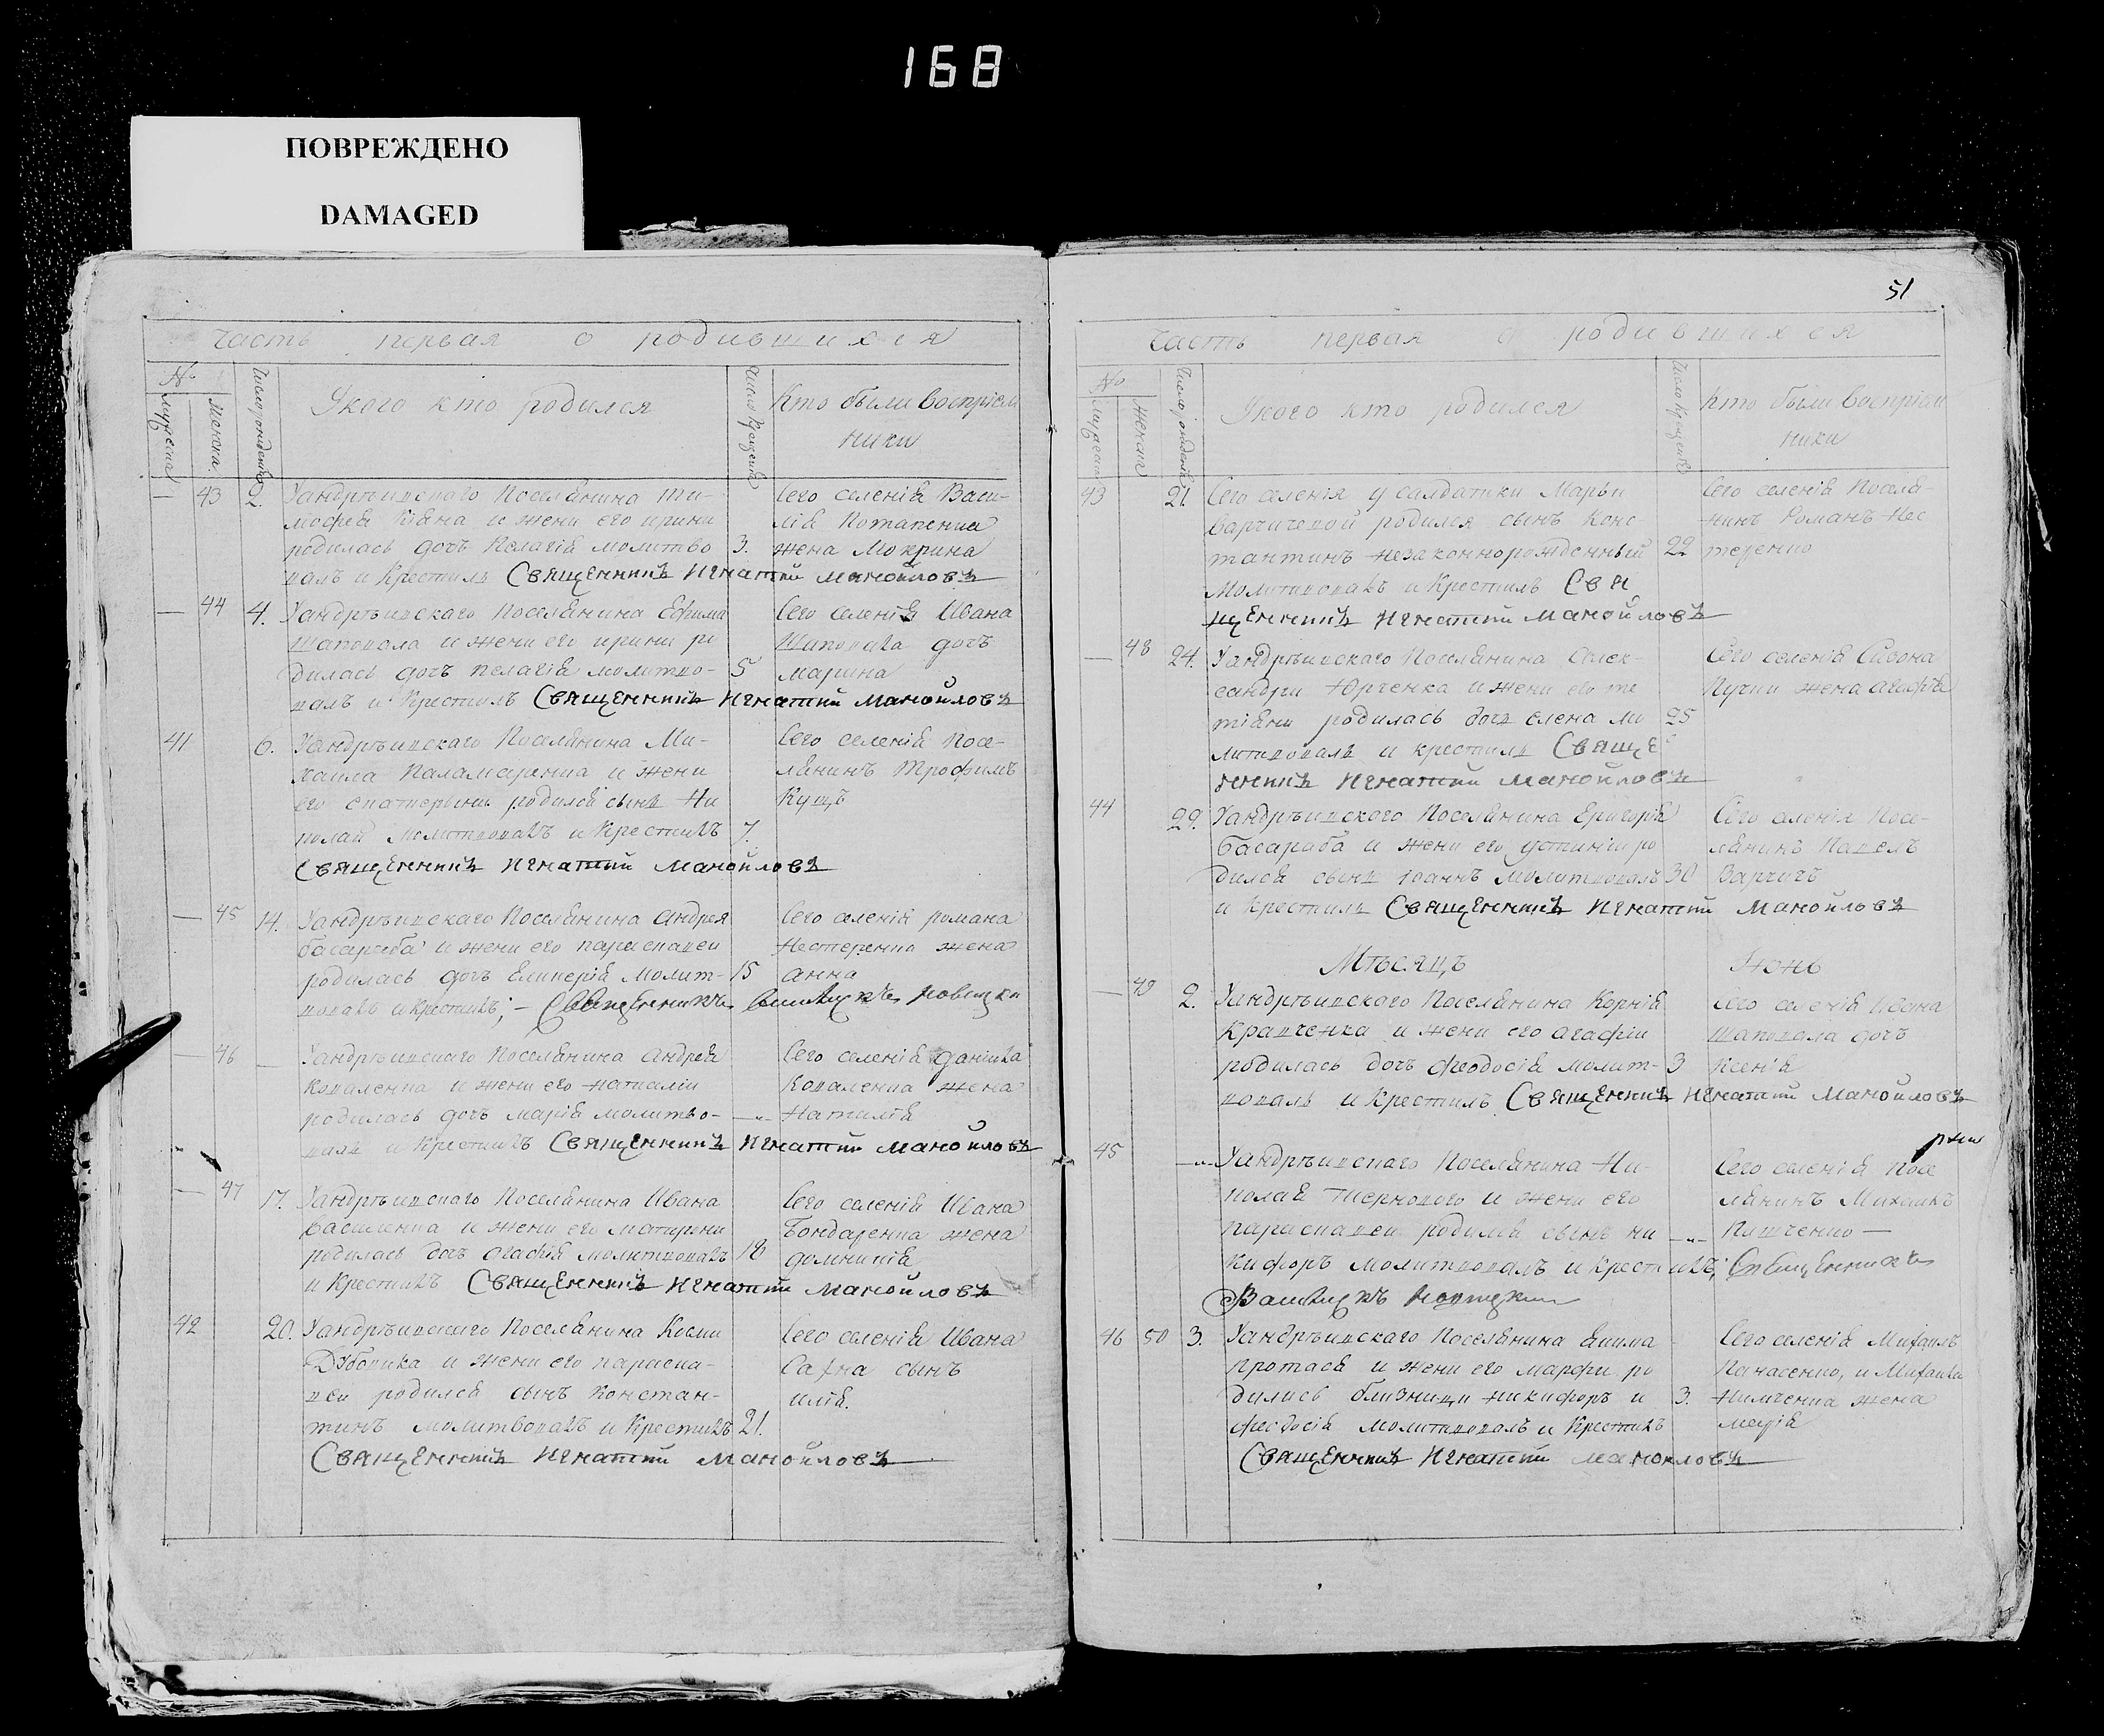 168
ПОВРЕЖДЕНО
DAMAGED
часть первая о родившихся
№
Мужеска
Женска
Число рождения
Укого кто родился
Число Крещения
Кто были воспріем
ники
43 2. Хандрѣевскаго Поселянина Ти-
мофея Кіяна и жени его ирини
родилась дочъ Пелагія молитво
валъ и Крестилъ Священникъ Игнатий Манойловъ
3.
Сего селенія Васи-
лія Потапенка
жена Мокрина
44 4. Хандрѣевскаго Поселянина Ефима
Шаповала и жени его ирини ро
дилась дочъ пелагія молитво-
валъ и Крестилъ Священникъ Игнатий Манойловъ
5
Сего селенія Ивана
Шаповала дочъ
марина
41 6. Хандрѣевскаго Поселянина Ми-
хаила Паламаренка и жени
его екатерыни родился сынъ Ни
колай Молитвовалъ и Крестилъ 7.
Священникъ Игнатий Манойловъ
Сего селенія Посе-
лянинъ Трофимъ
Кущъ
45 14. Хандрѣевскаго Поселянина андрея
басараба и жени его параскевеи
родилась дочъ Гликерія Молит-
вовалъ и крестилъ; – Священникъ
15
Сего селенія романа
Нестеренка жена
анна
46 Хандрѣевскаго Поселянина андрея
Коваленка и жени его наталіи
родилась дочъ марія молитво-
валъ и Крестилъ Священникъ Игнатий Манойловъ
Сего селенія данила
Коваленка жена
Наталія
47 17. Хандрѣевскаго Поселянина Ивана
василенка и жени его матрони
родилась дочъ агафія молитвовалъ 18
и Крестилъ Священникъ Игнатий Манойловъ
Сего селенія Ивана
Бондаренка жена
домникія
42 20. Хандрѣевскаго Поселянина Косми
Дубовика и жени его параске-
веи родился сынъ констан-
тинъ молитвовалъ и Крестилъ 21.
Священникъ Игнатий Манойловъ
Сего селенія Ивана
Сахна сынъ
илія.
51
часть первая о родившихся
№
Мужеска
Женска
Число рожденія
Укого кто родился
Число Крещенія
Кто были воспріем
ники
43 21. Сего селенія у салдатки Марьи
варчичевой родился сынъ Конс-
тантинъ незаконнорожденный 22
Молитвовалъ и Крестилъ Свя
щенникъ Игнатий Манойловъ
Сего селенія Поселя-
нинъ Романъ Нес
теренко
48 24. Хандрѣевскаго Поселянина алек-
сандри Юрченка и жени его те
тіяни родилась дочъ елена мо 25
литвовалъ и крестилъ Свяще
нникъ Игнатий Манойловъ
Сего селенія
жена агафія
44 29. Хандрѣевского Поселянина Григорія
басараба и жени его устиніи ро
дился сынъ іоаннъ Молитвовалъ 30
и Крестилъ Священникъ Игнатий Манойловъ
Сего селенія Посе-
лянинъ Павелъ
Варчичъ
Мѣсяцъ Іюнь
49 2. Хандрѣевскаго Поселянина Корнія
Кравченка и жени его агафіи
родилась дочъ феодосія молит- 3
вовалъ и Крестилъ Священникъ Игнатий Манойловъ
Сего селенія Ивана
Шаповала дочъ
Ксенія
45 Хандрѣевскаго Поселянина Ни-
колая Тернового и жени его
параскевеи родился сынъ ни
кифоръ молитвовалъ и крестилъ; Священникъ
Сего селенія Посе
лянинъ Михаилъ
46 50 3. Хандрѣевскаго Поселянина якима
протася и жени его марфи ро
дились близници никифоръ и 3.
феодосія молитвовалъ и Крестилъ
Священникъ Игнатий Манойловъ
Сего селенія Михаилъ
Панасенко, и Михаила
жена
марія